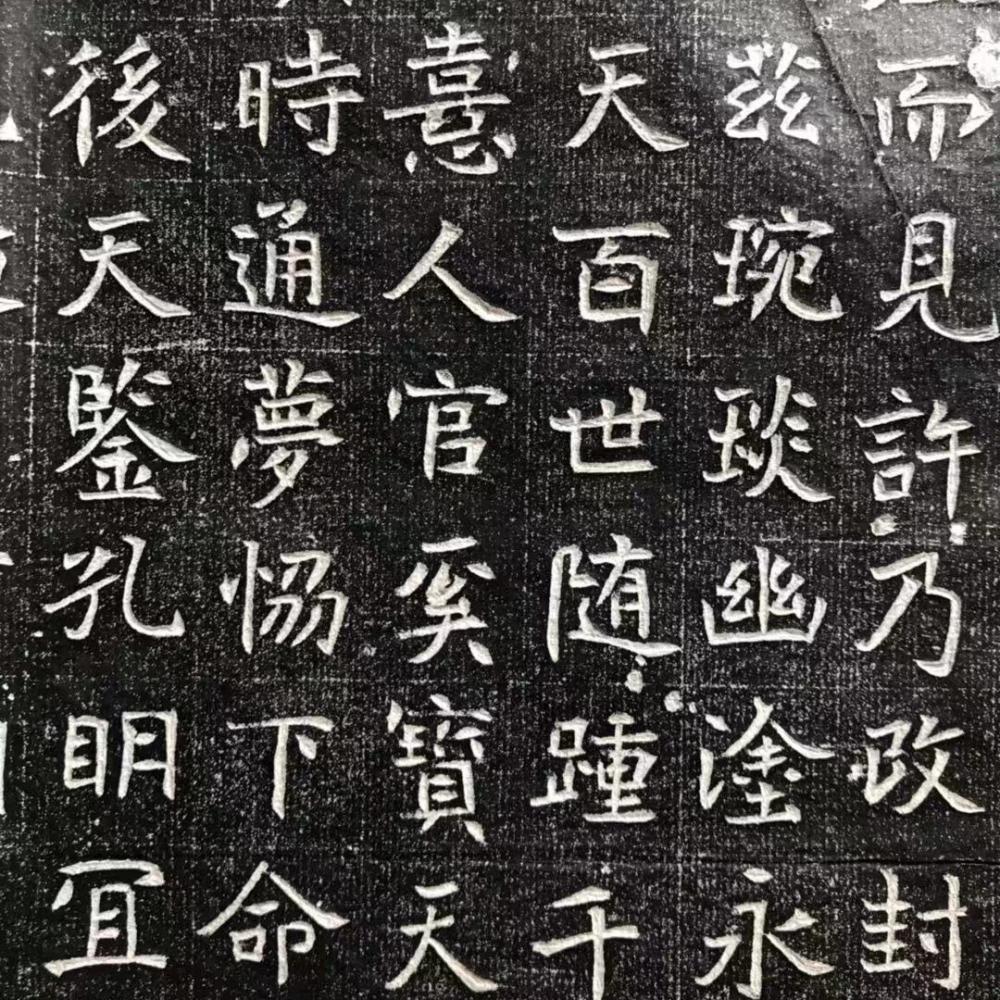 而見許乃政封
茲琬琰幽塗永
天百世随踵千
憙人官奚寶天
時通夢恊下命
後天鑒孔明冝